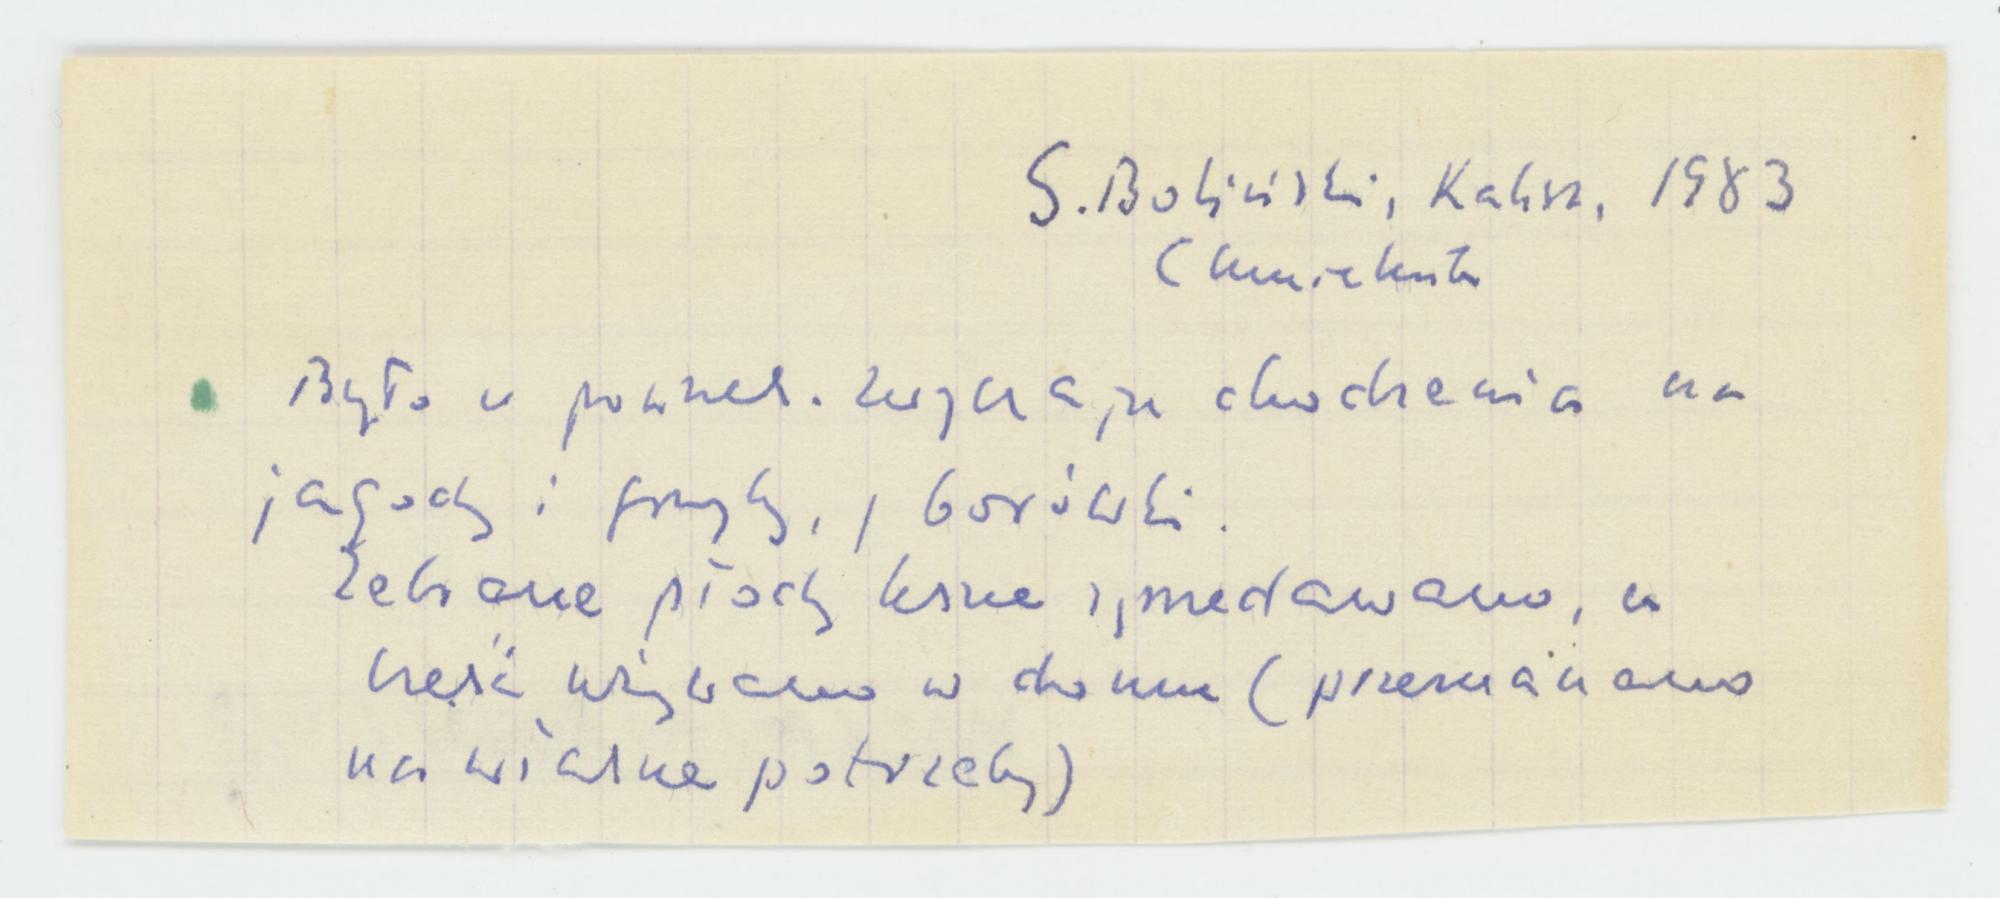 S. Boliński, Kalisz, 1983
Było w powszech. zwyczaju chodzenia na
jagody i grzyby, i borówki.
Zebrane płody leśne sprzedawano, a
część używano w domu (przeznaczano
na własne potrzeby)